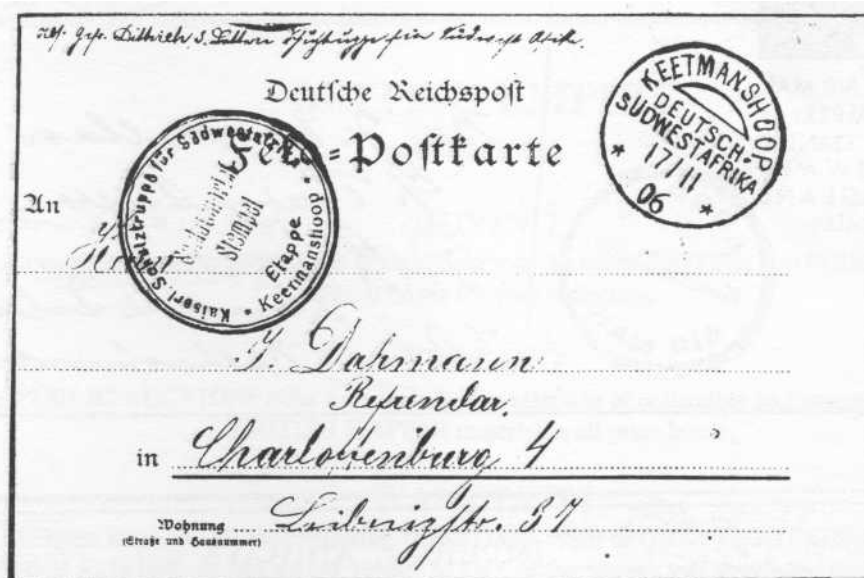 Gefr. Dittrich 3.
Deutsche Reichspost
Feld=Postkarte
KEETMANSHOOP
DEUTSCH-
SÜDWESTAFRIKA
17/11
06
* *
Kaiserl. Schutztruppe für Südwestafrika * Keetmanshoop *
Stempel
Etappe
An
Herrn
J. Dahmann
Referendar.
in Charlottenburg 4
Wohnung Leibnizstr. 37
(Straße und Hausnummer)